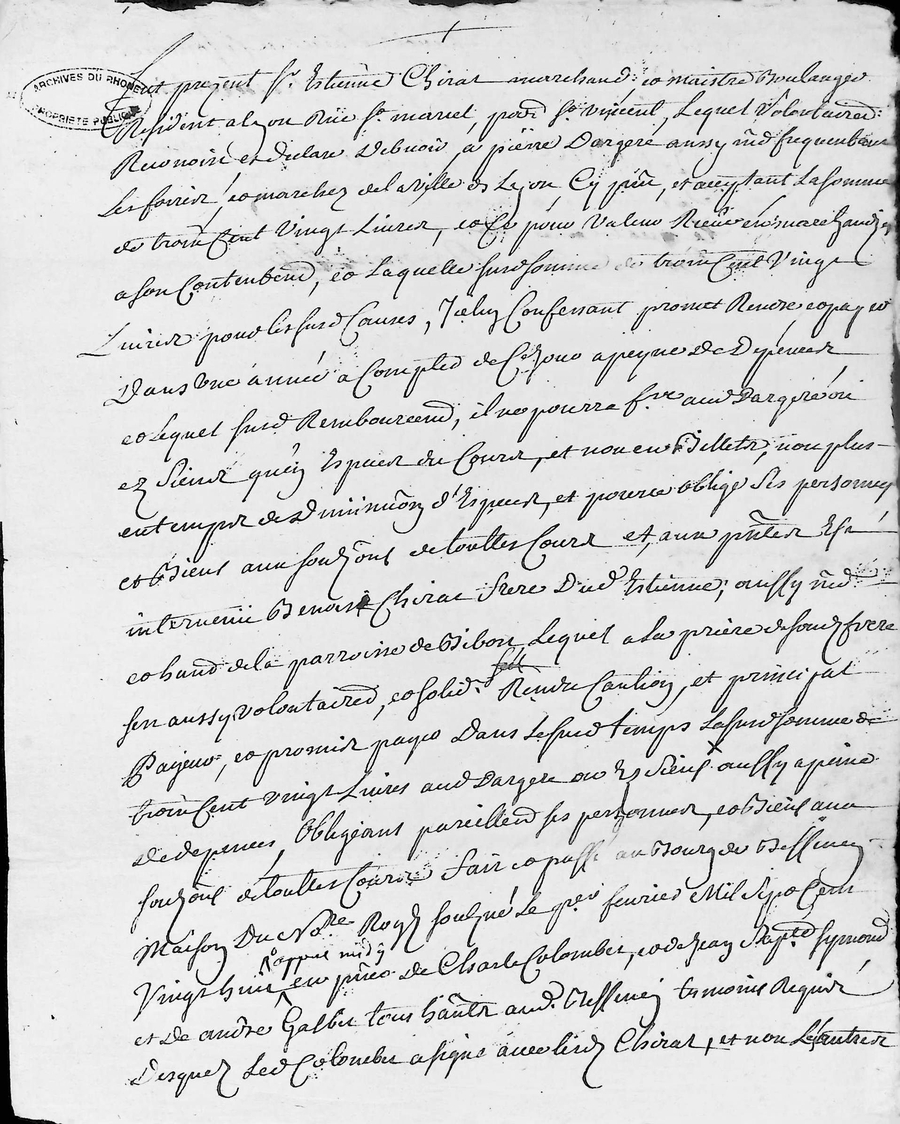 ARCHIVES DU RHONE
PROPRIETE PUBLIQUE
Fut present Sr. Estienne Chirat marchand, et maistre Boulanger
Resident a Lyon Rüe St. marcel, parr. St. vincent, Lequel volontairemt.
Reconoist et declare debvoir, a pierre Dargere aussy md frequentant
Les foires, et marchez de la ville de Lyon Cy pnt, et acceptant La somme
de trois Cent Vingt Livres, et Ce pour valeur Reçeue en marchandises
a son Contentemt, et Laquelle susd somme de trois Cent Vingt
Livres pour les susd Causes, Iceluy Confessant promet Rendre et payer
Dans une année a Compter de Ce Jour a peyne de Depences
et Lequel susd Remboursemt, il ne pourra fre aud Dargere ou
ez Siens qu'en Espece de Cours, et non en Billets, non plus
en temps de diminuon d'Espece, et pour ce oblige Ses personnes
et Biens aux soubzons de touttes Cours et, aux pntes Est
intervenü Benoist Chirat frere Dud Estienne, aussy md
et hand de la parroisse de Bibost Lequel a La priere de soud frere
sen aussy volontairemt, et solid. Rendu Caution, et principal
Payeur, et promis payer Dans Le susd temps La susd somme de
trois Cent vingt Livres aud Dargere ou Ez Siens aussy a peine
de depences, Obligeant pareillemt ses personnes, et Biens aux
soubzons de touttes Cours Fait et passé au Bourg de Bessenay
Maison Du Nre Royal soubsigné Le per fevrier Mil Sept Cent
apres midy
Vingt huit en pnce de Charle Colomber, et de Jean Bapte Symond
et de andre Galbit tous hants aud. Bessenay temoins Requis
Desquez Led Colomber a signé avec lesd Chirat, et non Les autres